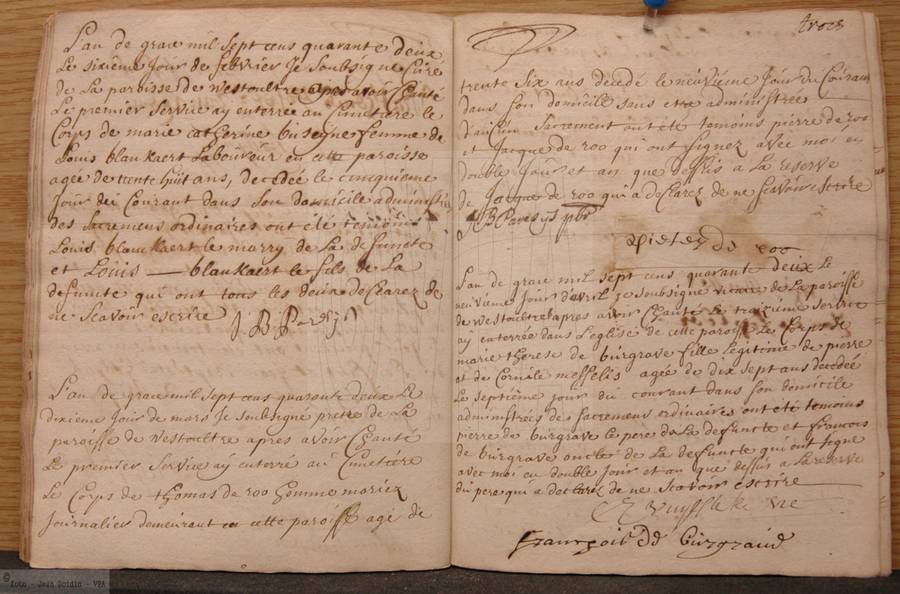 L'an de grace mil sept cens quarante deux
Le sixième Jour de febvrier Je soubsigné Curé
de La paroisse de Westoultre aprè avoir Chanté
Le premier Service aÿ enterrée au Cimetiere le
Corps de marie catherine buseyne femme de
Louis blankaert Laboureur en cette paroisse
agée de trente huit ans, decedée le cinquieme
Jour du Courant dans son domicile administrée
des Sacremens ordinaires ont été temoins
Louis blanckaert le marry de La defuncte
et Louis — blankaert le fils de La
defuncte qui ont tous les deux declarez de
ne Scavoir escrire
L'an de grace mil sept cens quarante deux Le
dixieme Jour de mars Je soubsigné pretre de La
paroisse de Westoultre apres avoir Chanté
Le premier Service aÿ enterré au Cimetiere
Le Corps de thomas de roo homme mariez
Journalier demeurant en cette paroisse agé de
trois
trente Six ans decedé le neuvieme Jour du Courant
dans son domicile sans etre administrée
d'aucun Sacrement ont été temoins pierre de roo
et Jacque de roo qui ont signez avec moi en
double Jour et an que dessus a La reserve
de Jacque de roo qui a declarez de ne scavoir escrire
pieter de roo
L'an de grace mil sept cens quarante deux Le
neuviemes Jour d'avril je soubsigné vicaire de La paroisse
de Westoultre apres avoir Chanté Le troisieme Service
ay enterrée dans L'eglise de cette paroisse Le Corps de
marie therese de burgrave fille Legitime de pierre
et de Cornile messelis agée de dix sept ans decedée
Le septieme jour du courant dans son domicile
administrées des sacremens ordinaires ont été temoins
pierre de burgrave le pere de La defuncte et francois
de burgrave oncle de La defuncte qui ont signe
avec moi en double Jour et an que dessus a La reserve
du pere qui a declarez de ne Scavoir escrire
françois de burgraud
© foto - Jean Gordin - VPA